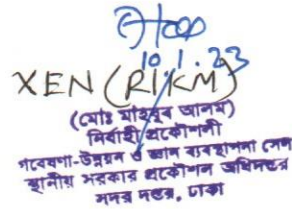 10.1.23
XEN (RIKM)
(মোঃ মাহবুব আলম)
নির্বাহী প্রকৌশলী
গবেষণা-উন্নয়ন ও জ্ঞান ব্যবস্থাপনা সেল
স্থানীয় সরকার প্রকৌশল অধিদপ্তর
সদর দপ্তর, ঢাকা